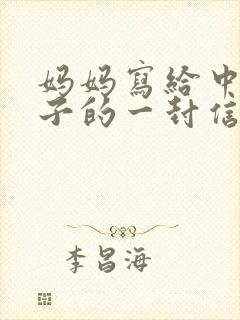 妈妈寫給中
子的一封信
李昌海